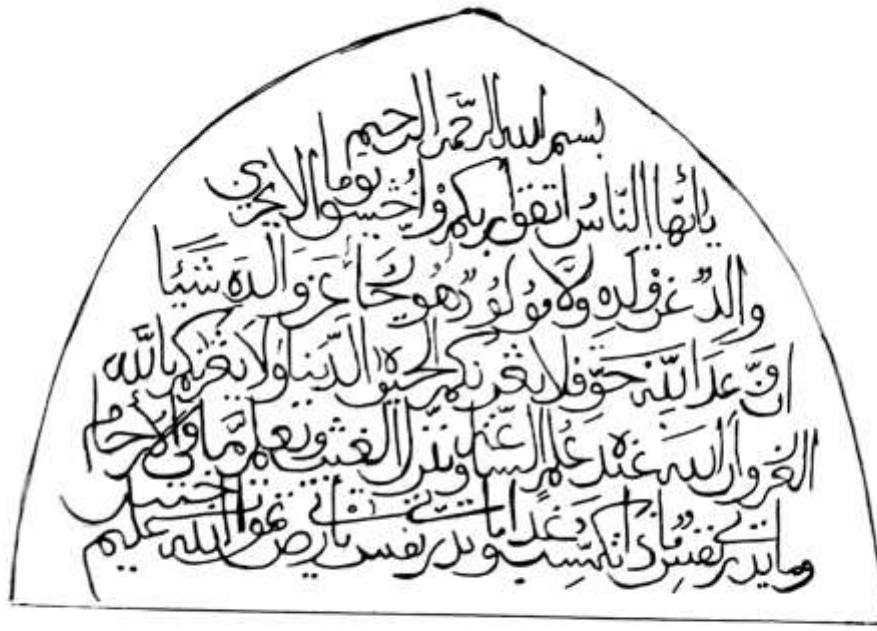 بسم الله الرحمن الرحيم
يا أيها الناس اتقوا ربكم واخشوا يوما لا يجزي
والد عن ولده ولا مولود هو جاز عن والده شيئا
ان وعد الله حق فلا تغرنكم الحيوة الدنيا ولا يغرنكم بالله
الغرور ان الله عنده علم الساعة وينزل الغيث ويعلم ما في الأرحام
وما تدري نفس ماذا تكسب غدا وما تدري نفس باي ارض تموت ان الله عليم خبير